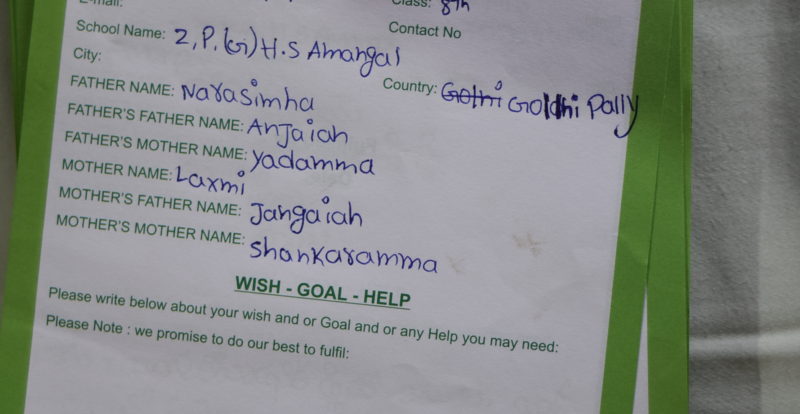 E-mail:
Class: 8th
School Name: Z.P.(G) H.S Amangal
Contact No
City:
Country: Golhi Goldhi Pally
FATHER NAME: Narasimha
FATHER'S FATHER NAME: Anjaiah
FATHER'S MOTHER NAME: Yadamma
MOTHER NAME: Laxmi
MOTHER'S FATHER NAME: Jangaiah
MOTHER'S MOTHER NAME: Shankaramma
WISH - GOAL - HELP
Please write below about your wish and or Goal and or any Help you may need:
Please Note : we promise to do our best to fulfil: